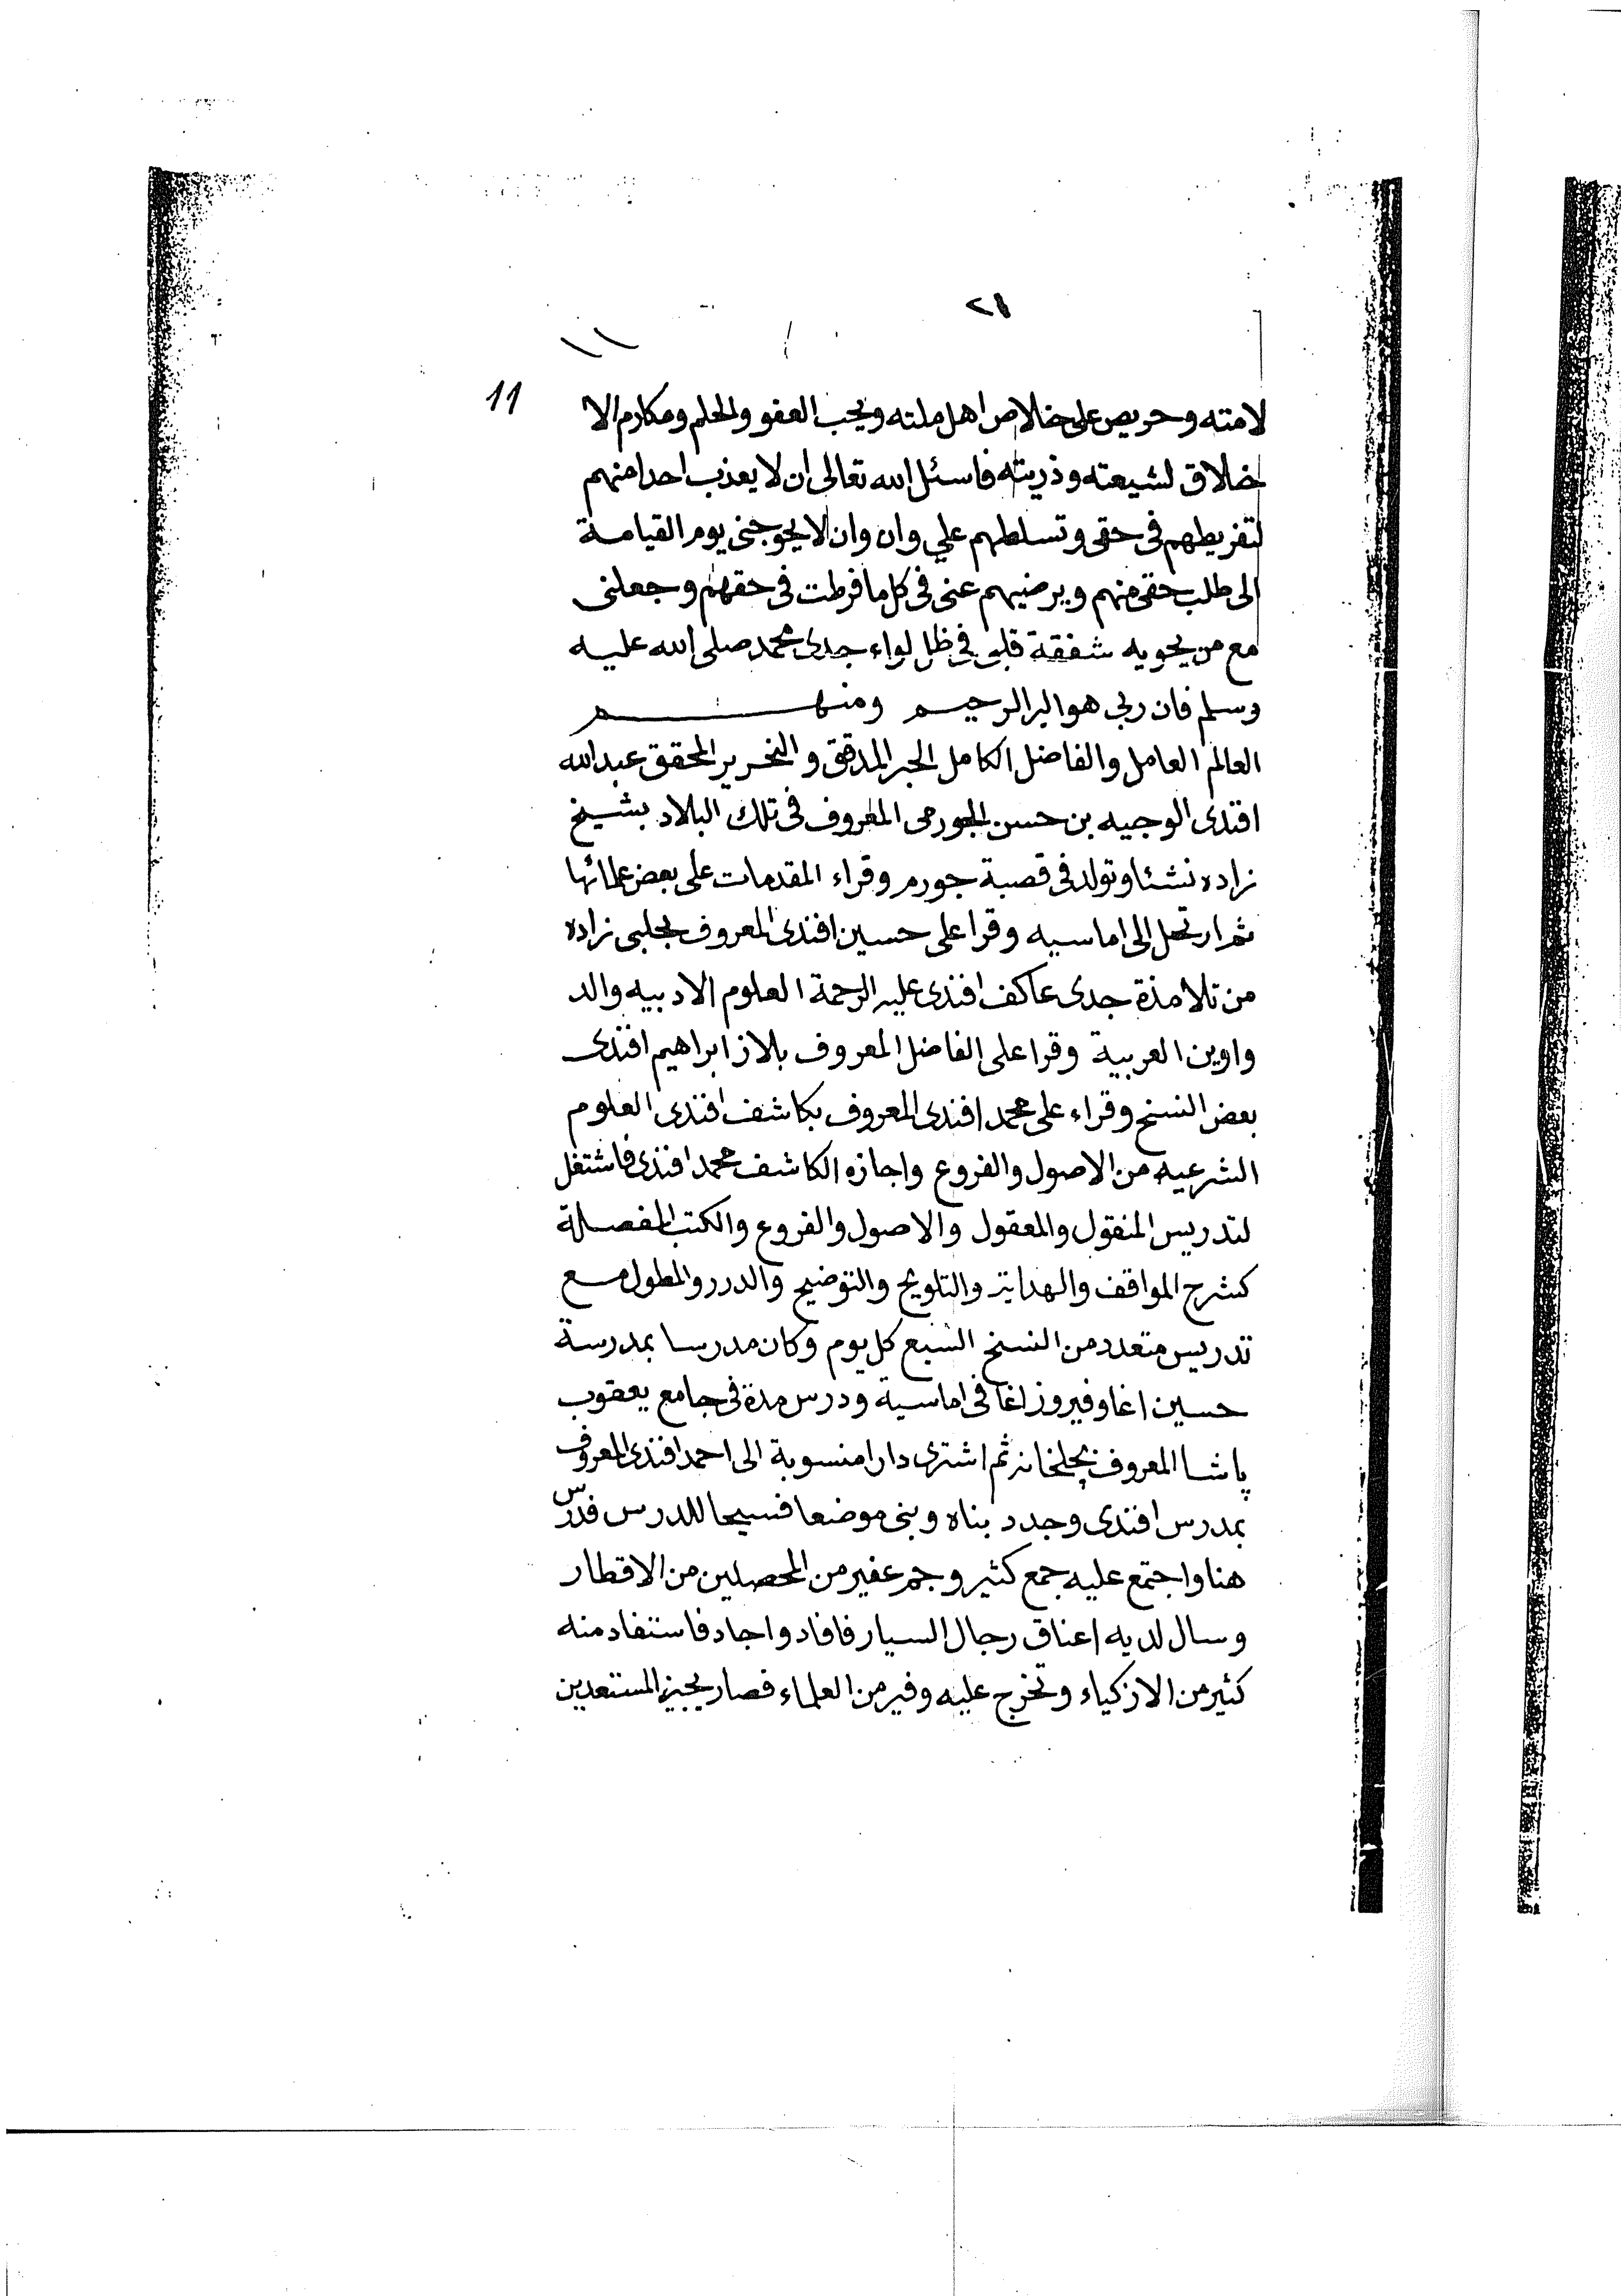 ٢١
١١
11
لامته وحريص على خلاص اهل ملته ويحب العفو والحلم ومكارم الا
خلاق لشيعته وذريته فاسئل الله تعالى ان لا يعذب احدا منهم
لتفريطهم فى حقى وتسلطهم علي وان وان لا يحوجنى يوم القيامة
الى طلب حقى منهم ويرضيهم عنى فى كل ما فرطت فى حقهم وجعلنى
مع من يحويه شفقة قلبى فى ظل لواء جدى محمد صلى الله عليه
وسلم فان ربى هو البر الرحيم ومنهم
العالم العامل والفاضل الكامل الحبر المدقق والنحرير المحقق عبد الله
افندى الوجيه بن حسن الجورمى المعروف فى تلك البلاد بشيخ
زاده نشئا وتولد فى قصبة جورم وقراء المقدمات على بعض علمائها
ثم ارتحل الى اماسيه وقرا على حسين افندى المعروف بچلبى زاده
من تلامذة جدى عاكف افندى عليه الرحمة العلوم الادبيه والد
واوين العربية وقرا على الفاضل المعروف بلاز ابراهيم افندى
بعض النسخ وقراء على محمد افندى المعروف بكاشف افندى العلوم
الشرعيه من الاصول والفروع واجازه الكاشف محمد افندى فاشتغل
لتدريس المنقول والمعقول والاصول والفروع والكتب المفصلة
كشرح المواقف والهداية والتلويح والتوضيح والدرر والمطول مع
تدريس متعدد من النسخ السبع كل يوم وكان مدرسا بمدرسة
حسين اغا وفيروز اغا فى اماسية ودرس مدة فى جامع يعقوب
پاشا المعروف بچلخانه ثم اشترى دارا منسوبة الى احمد افندى المعروف
بمدرس افندى وجدد بناه وبنى موضعا فسيحا للدرس فدرس
هنا واجتمع عليه جمع كثير وجم غفير من المحصلين من الاقطار
وسال لديه اعناق رجال السيار فافاد واجاد فاستفاد منه
كثير من الازكياء وتخرج عليه وفير من العلماء فصار يجيز المستعدين